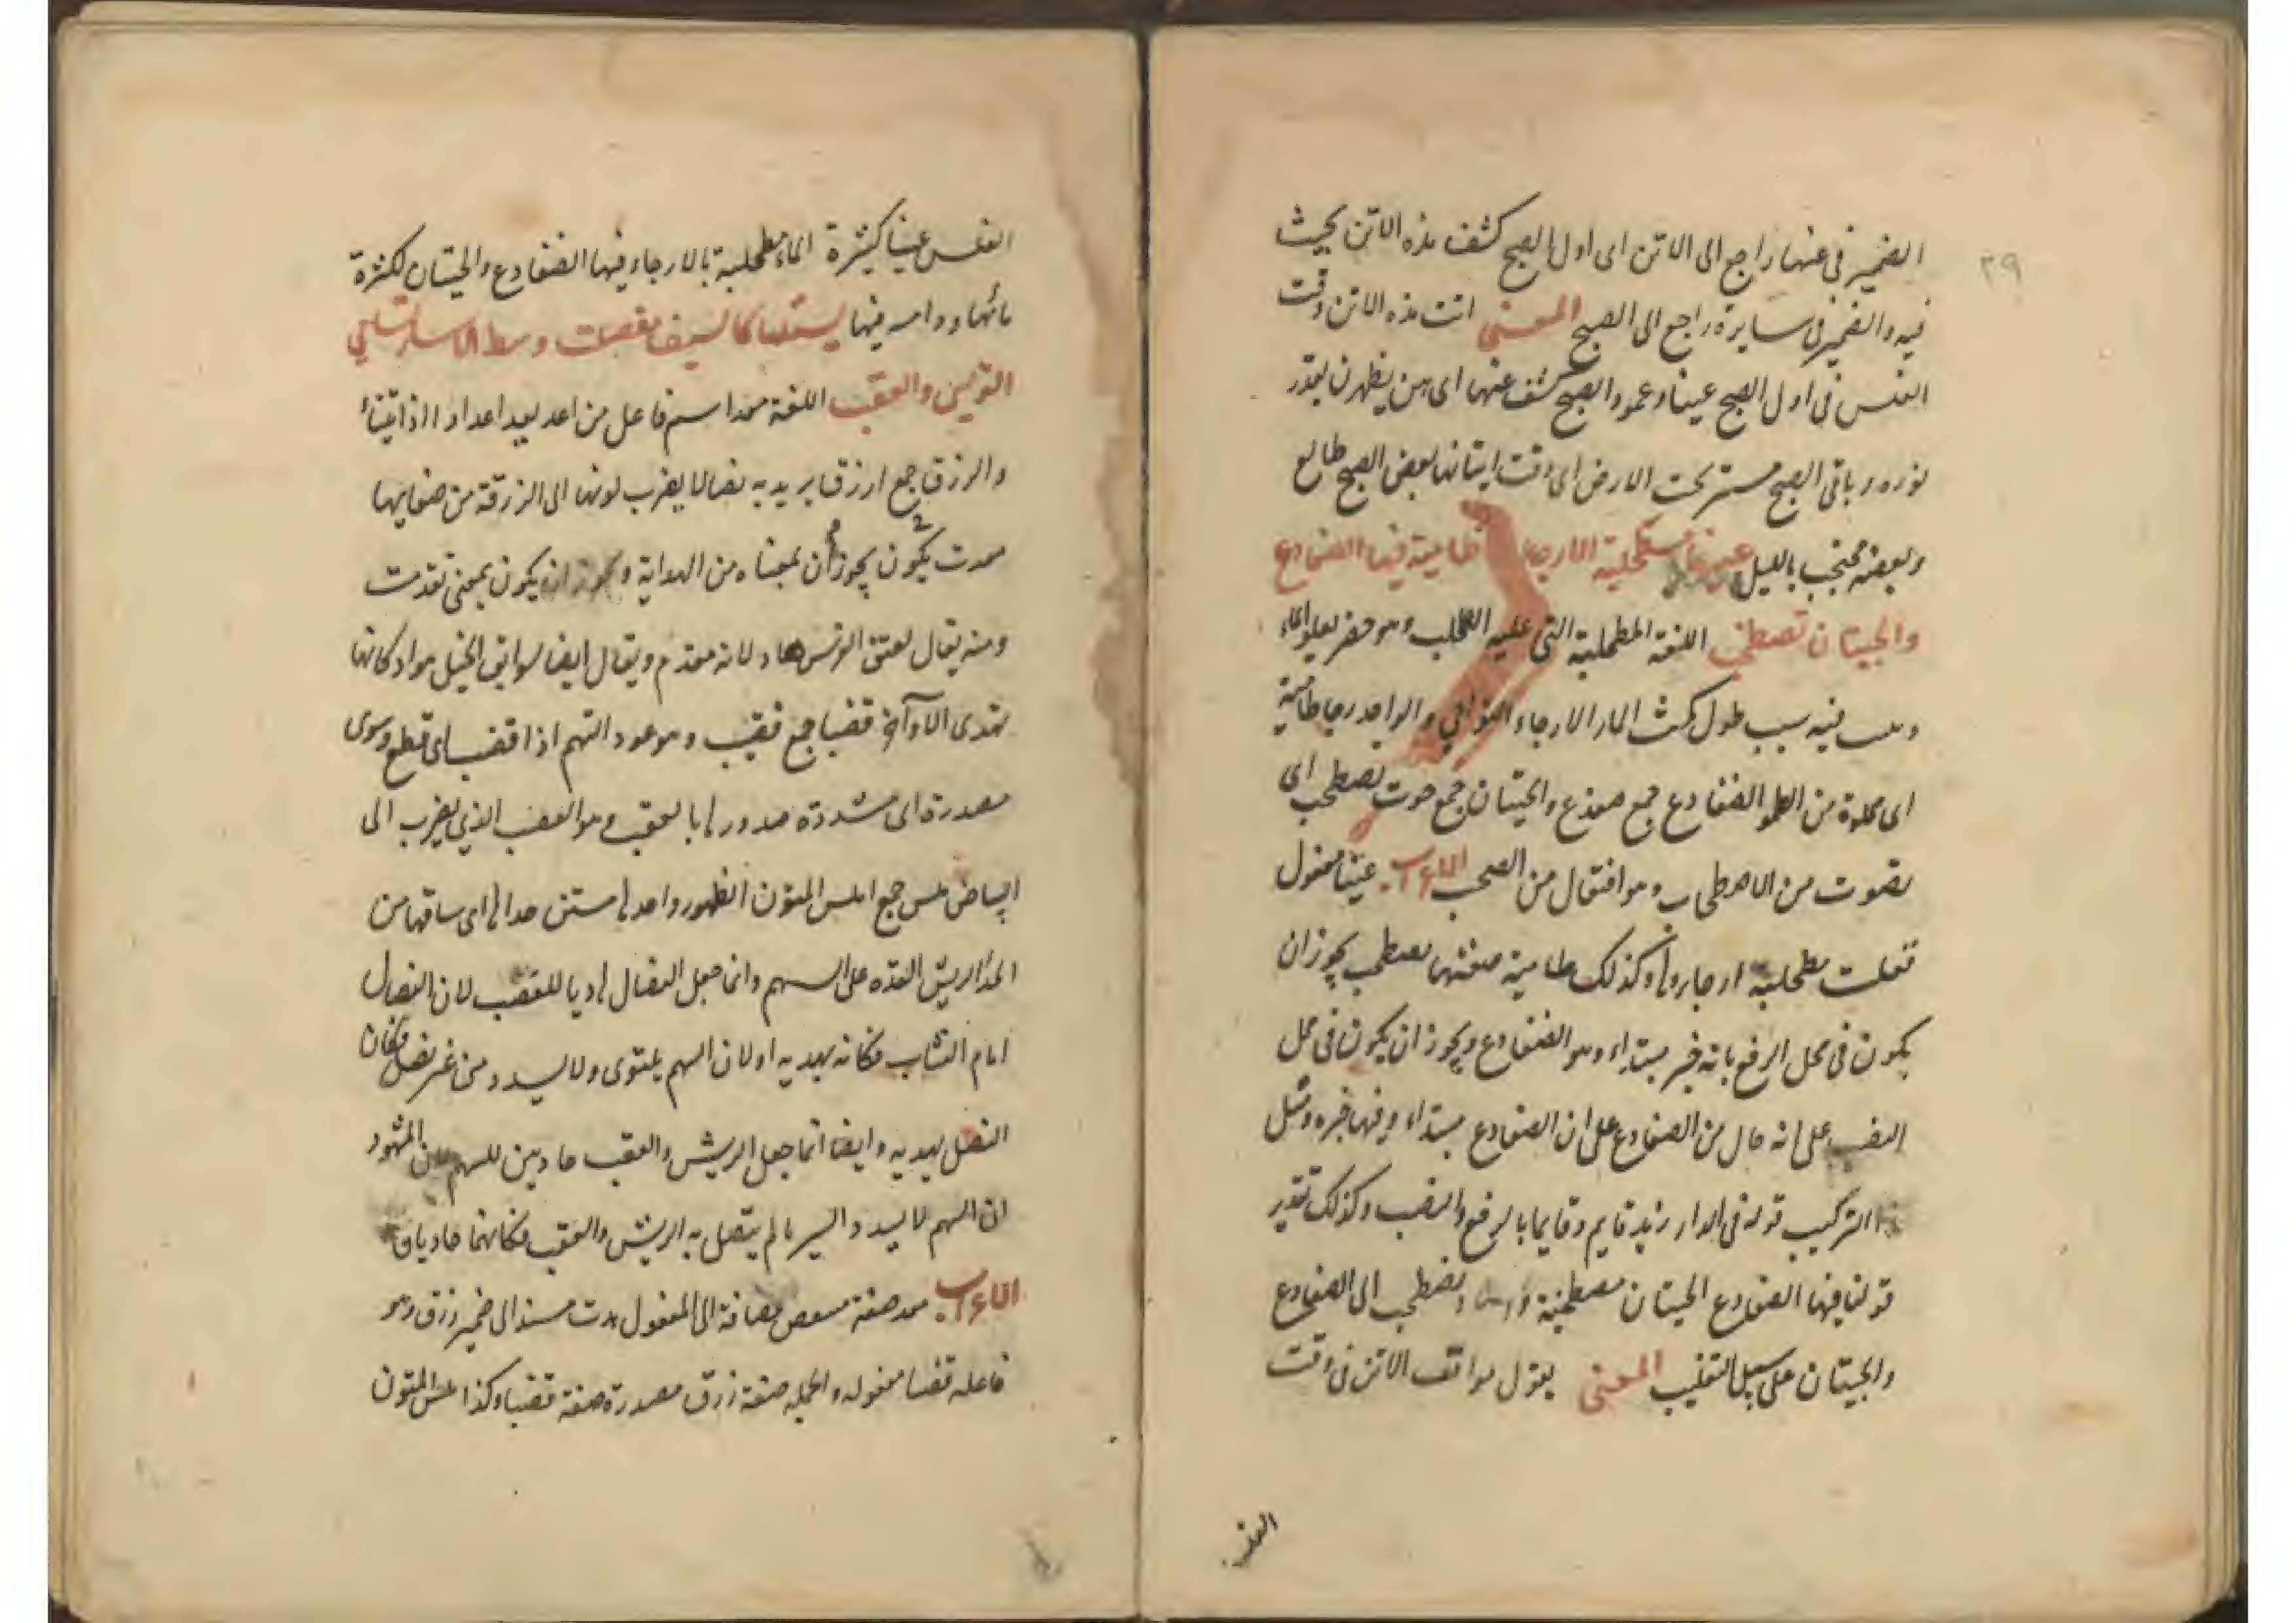 ٣٩
الضمير فى عنها راجع الى الاتن اى اول الصبح كشف هذه الاتن بحيث
فيه والضمير فى سايره راجع الى الصبح المعنى اتت هذه الاتن وقت
الغلس فى اول الصبح عينا وعمود الصبح كشف عنها اى بين يظهرن بقدر
نوره وباقى الصبح مستتر تحت الارض اى وقت اتيانها بعض الصبح طالع
وبعضه محتجب بالليل عينا مطحلبة الارجاء طامية فيها الضفادع
والحيتان تصطخب اللغة المطحلبة التى عليه الطحلب وهو خضر يعلو الماء
فيه سبب طول مكث الماء الارجاء النواحي والواحد رجا طامية
اى مملوة من الطمو الضفادع جمع ضفدع والحيتان جمع حوت تصطخب اى
تصوت من الاصطخاب وهو افتعال من الصخب الاعراب عينا مفعول
مطحلبة ارجاءها وكذلك طامية صفتها تصطخب يجوز ان
يكون فى محل الرفع بانه خبر مبتداء وهو الضفادع ويجوز ان يكون فى محل
النصب على انه حال من الضفادع على ان الضفادع مبتداء وفيها خبره ومثل
هذا التركيب قوله فى الدار زيد قايم وقايما بالرفع والنصب وكذلك تقدير
قولنا فيها الضفادع الحيتان مصطخبة تصطخب الى الضفادع
والحيتان على سبيل التغليب المعنى يقول موافت الاتن فى وقت
الغلس
الغلس عينا كثيرة الماء مطحلبة بالارجاء فيها الضفادع والحيتان لكثرة
مائها فيها يستلها كالسيف
والعقب اللغة معد اسم فاعل من اعد يعد اعدادا اذا
والزرق جمع ازرق يريد به نصالا يضرب لونها الى الزرقة من صفايها
هدت يكون يجوز أن بمعناه من الهداية ويجوز ان يكون بمعنى تقدمت
ومنه يقال لعنق الفرس هاد لانه مقدم ويقال ايضا لسوابق الخيل هواد كانها
تهدى الاواخر قضبا جمع قضيب وهو عود السهم اذا قضب اى قطع وسوى
مصدرة اى مشددة صدورها بالعقب وهو العصب الذى يضرب الى
البياض ملس جمع املس المتون الظهور واحدها متن حداها اى ساقها من
على السهم وانما جعل النصال هاديا للقضب لان النصال
امام النشاب فكانه يهديه او لان السهم يلتوى ولا يسدد من غير نصل فكان
النصل يهديه وايضا انما جعل الريش والعقب هاديين للسهم لان المشهور
ان السهم لا يسدد السير ما لم يتصل به الريش والعقب فكانهما هاديان
الاعراب معد صفة مضافة الى المفعول هدت مسند الى ضمير زرق وهو
فاعله قضبا مفعوله والجمله صفة زرق مصدرة صفة قضبا وكذا ملس المتون